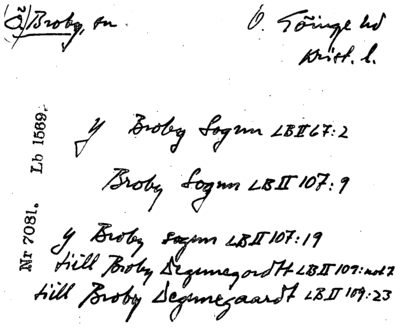 (Ö) Broby, sn.
Ö. Göinge hd
Krist. l.
y Broby Sognn LB II 67:2
Broby Sognn LB II 107:9
y Broby sognn LB II 107:19
till Broby Degnnegordtt LB II 109: not 7
till Broby Degnnegaardt LB II 109:23
Nr 7081. Lb 1569.